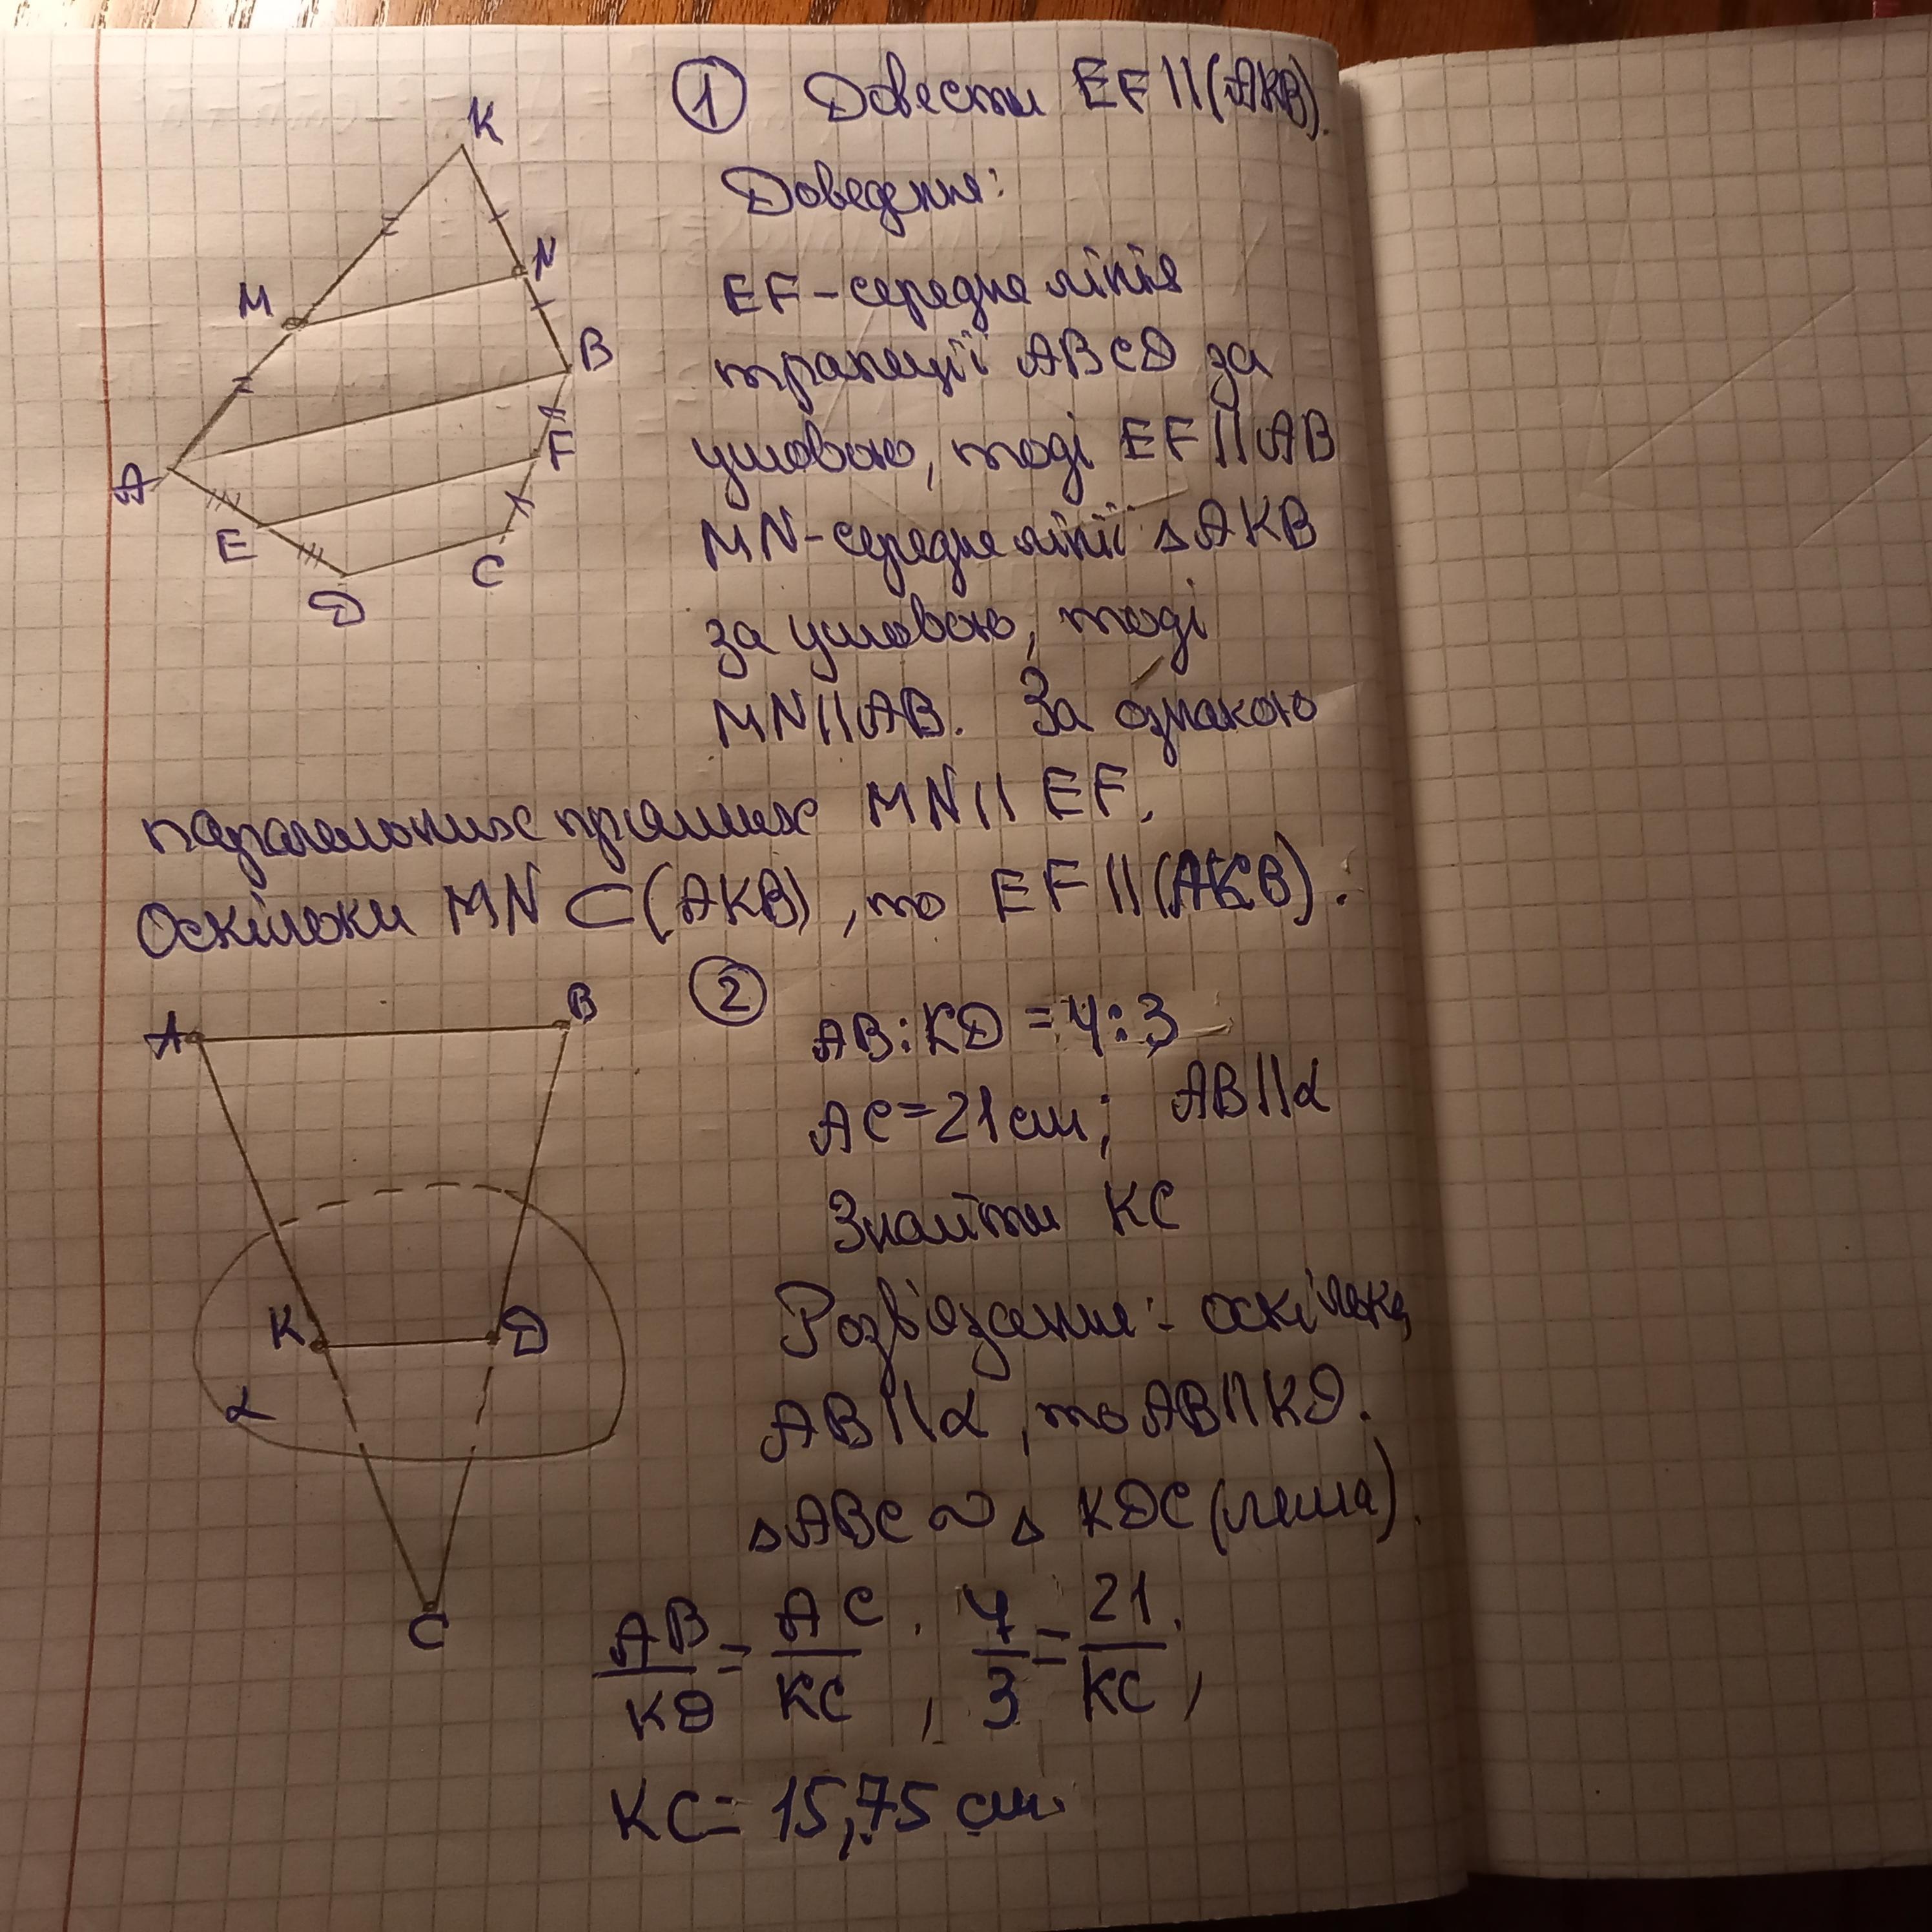 ① Довести EF||(AKB).
Доведення:
EF-середня лінія
трапеції ABCD за
умовою, тоді EF||AB
MN-середня лінії △AKB
за умовою, тоді
MN||AB. За ознакою
паралельних прямих MN||EF.
Оскільки MN⊂(AKB), то EF||(AKB).
K
M
N
B
A
F
E
C
D
② AB:KD=4:3
AC=21см; AB||α
Знайти KC
Розв'язання: оскільки
AB||α, то AB||KD.
△ABC∼△KDC(лема).
AB/KD=AC/KC, 4/3=21/KC,
KC=15,75 см.
A
B
K
D
α
C